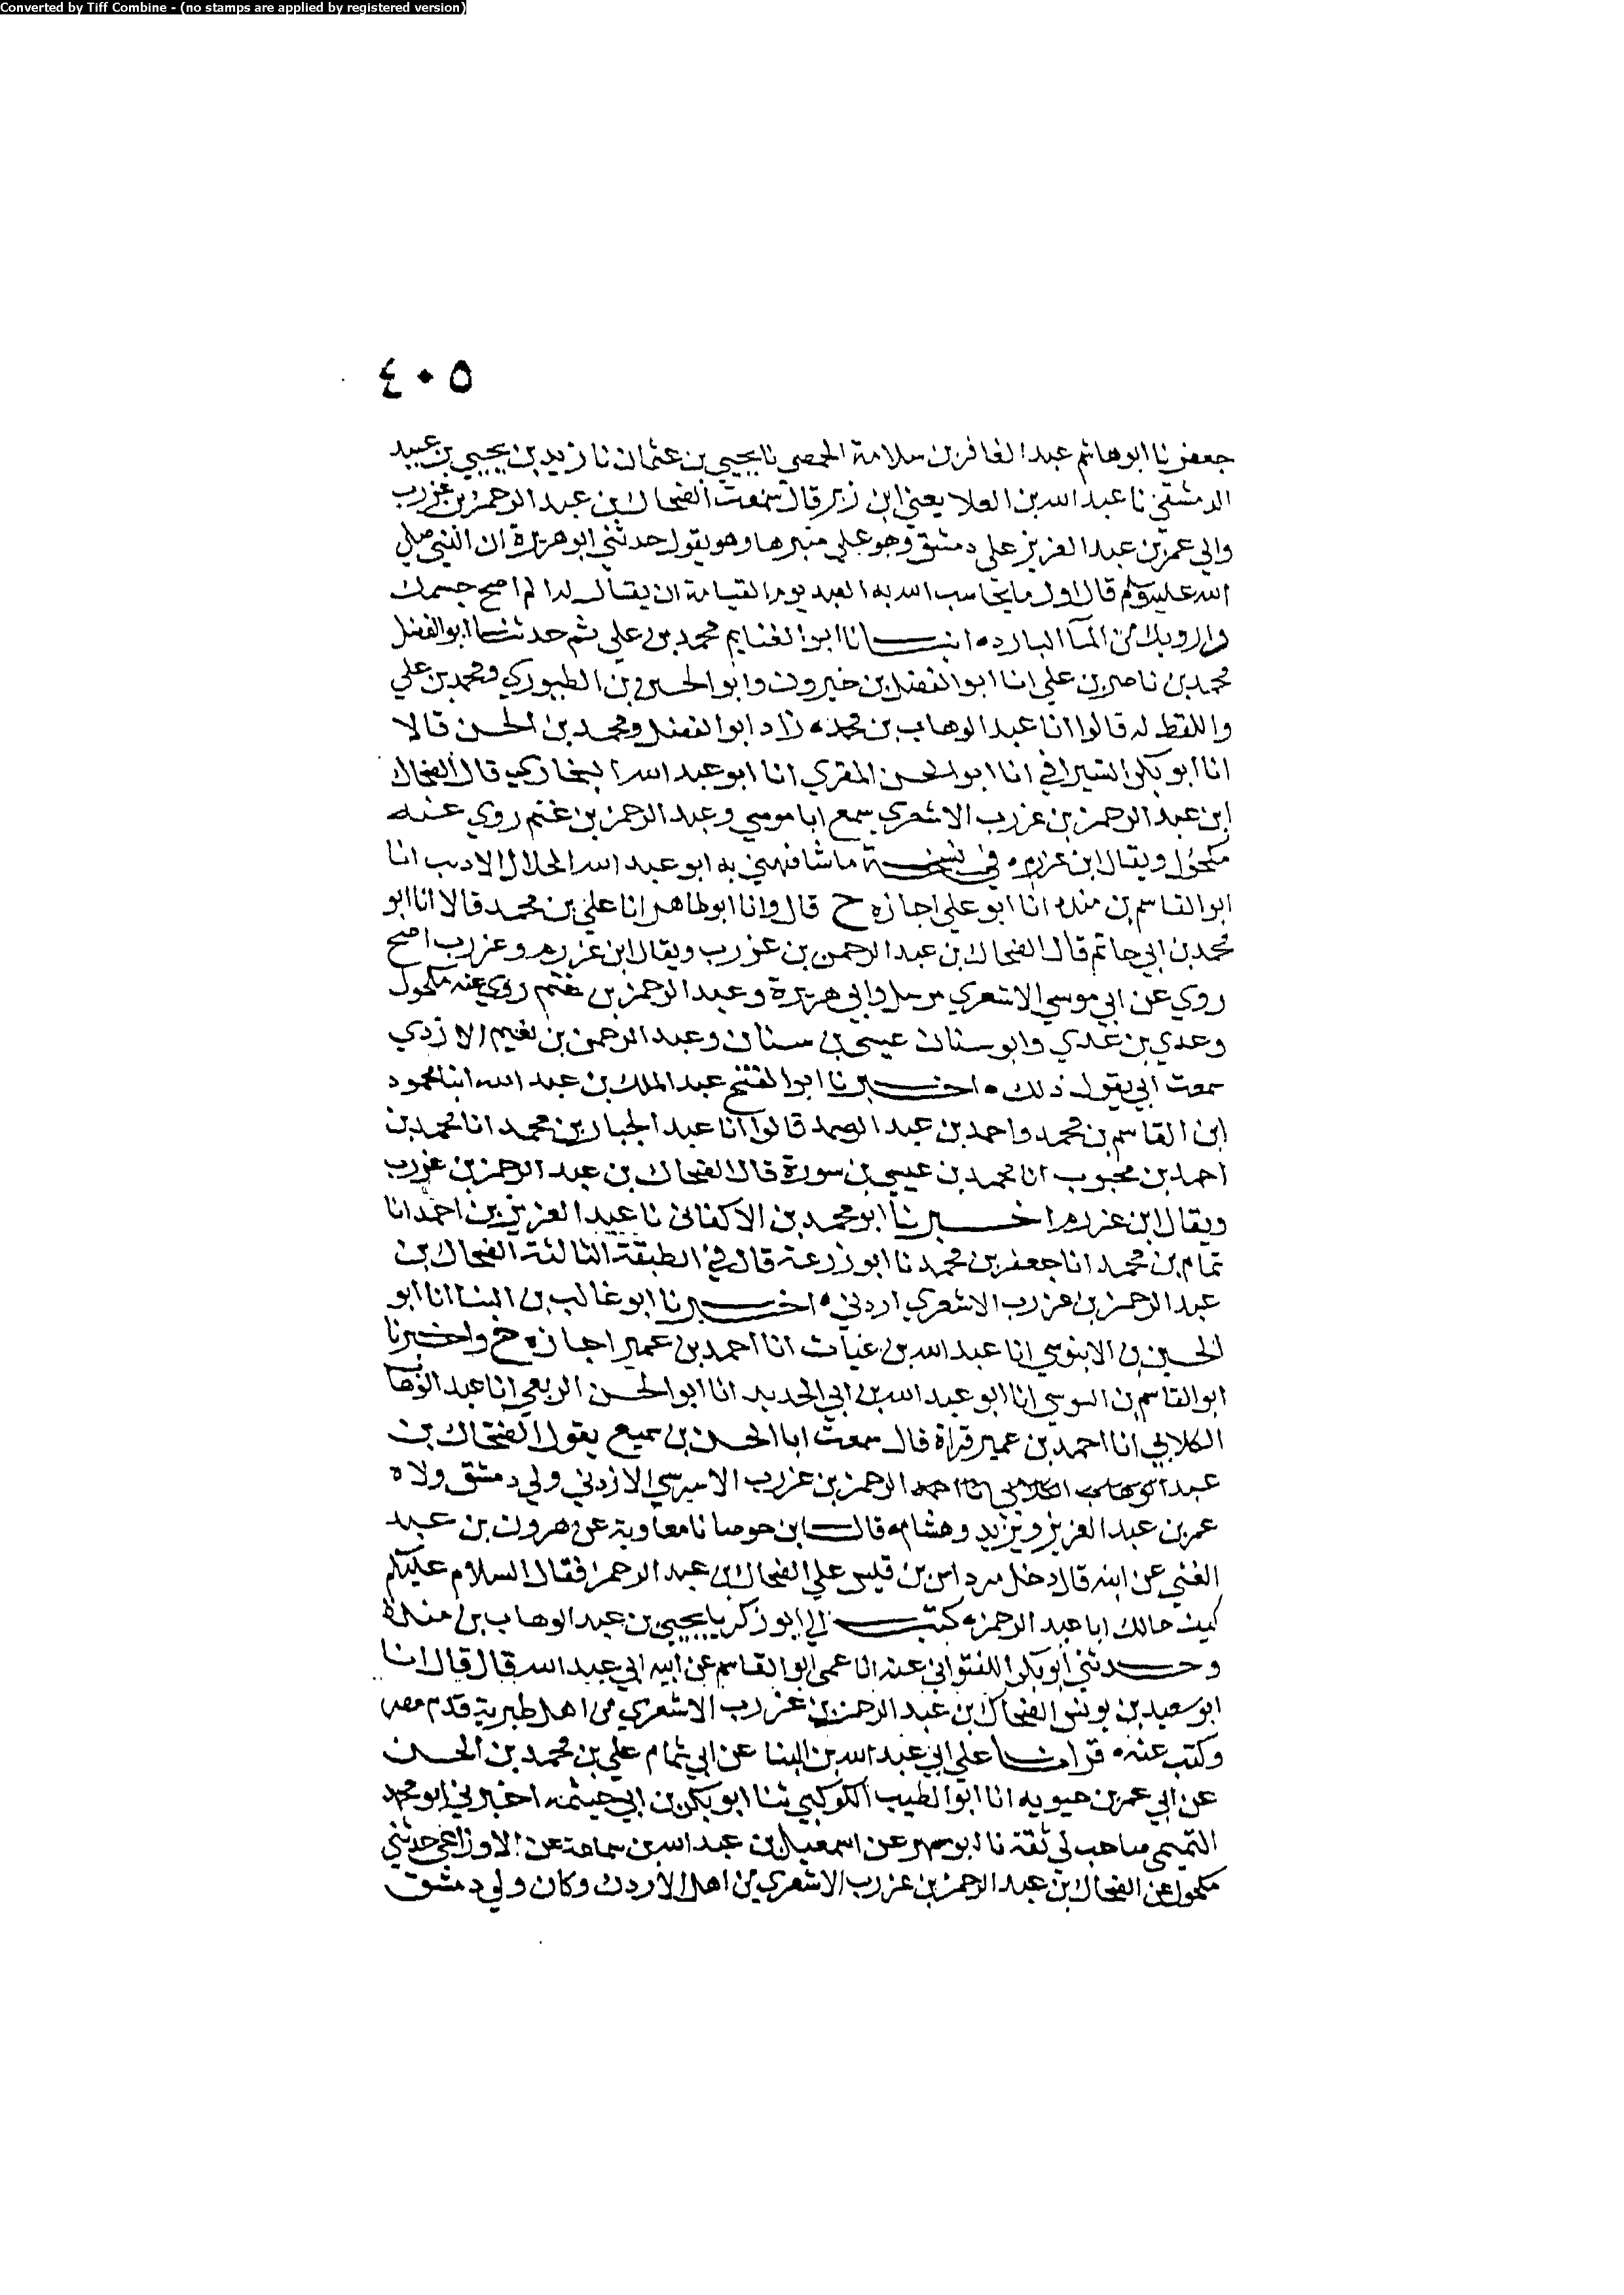 Converted by Tiff Combine - (no stamps are applied by registered version)
٤٠٥
جعفر نا ابو هاشم عبد الغافر بن سلامة الحمصي نا يحيي بن عثمان نا زيد بن يحيي بن عبيد
الدمشقي نا عبد الله بن العلا يعني ابن زبر قال سمعت الضحاك بن عبد الرحمن بن عزرب
والي عمر بن عبد العزيز علي دمشق وهو علي منبرها وهو يقول حدثني ابو هريرة ان النبي صلي
الله عليه وسلم قال اول ما يحاسب الله به العبد يوم القيامة ان يقال له الم اصح جسمك
وارويك من المآ البارد ه انبــانا ابو الغنايم محمد بن علي ثم حدثنــا ابو الفضل
محمد بن ناصر بن علي انا ابو الفضل بن خيرون وابو الحسين بن الطيوري ومحمد بن علي
واللفظ له قالوا انا عبد الوهاب بن محمد ه زاد ابو الفضل ومحمد بن الحسن قالا
انا ابو بكر الشيرازي انا ابو الحسن المقري انا ابو عبد الله البخاري قال الضحاك
ابن عبد الرحمن بن عزرب الاشعري سمع ابا موسي وعبد الرحمن بن غنم روي عنه
مكحول ويقال ابن عرزم ه في نسخــة ما شافهني به ابو عبد الله الخلال الاديب انا
ابو القاسم بن منده انا ابو علي اجازه ح قال وانا ابو طاهر انا علي بن محمد قالا انا ابو
محمد بن ابي حاتم قال الضحاك بن عبد الرحمن بن عزرب ويقال ابن عزرم وعزرب اصح
روي عن ابي موسي الاشعري مرسل وابي هريرة وعبد الرحمن بن غنم روي عنه مكحول
وعدي بن عدي وابو سنان عيسي بن سنان وعبد الرحمن بن نعيم الازدي
سمعت ابي يقول ذلك ه اخــبرنا ابو الفتح عبد الملك بن عبد الله انا محمود
ابن القاسم بن محمد واحمد بن عبد الصمد قالوا انا عبد الجبار بن محمد انا محمد بن
احمد بن محبوب انا محمد بن عيسي بن سورة قال الضحاك بن عبد الرحمن بن عزرب
ويقال ابن عزرم اخــبرنا ابو محمد بن الاكفاني نا عبد العزيز بن احمد انا
تمام بن محمد انا جعفر بن محمد نا ابو زرعة قال في الطبقة الثالثة الضحاك بن
عبد الرحمن بن عزرب الاشعري اردني ه اخــبرنا ابو غالب بن البنا انا ابو
الحسين بن الابنوسي انا عبد الله بن عتاب انا احمد بن عمير اجازه ح واخبرنا
ابو القاسم بن السوسي انا ابو عبد الله بن ابي الحديد انا ابو الحسن الربعي انا عبد الوهاب
الكلابي انا احمد بن عمير قراة قال سمعت ابا الحسن بن سميع يقول الضحاك بن
عبد الرحمن بن عزرب الازدني ولي دمشق ولاه
عمر بن عبد العزيز ويزيد وهشام ه قال ابن جوصا نا معاوية عن هرون بن عبد
الغني عن ابيه قال دخل بن قيس علي الضحاك بن عبد الرحمن فقال السلام عليكم
كيف حالك ابا عبد الرحمن ه كتب الي ابو زكريا يحيي بن عبد الوهاب بن مندة
وحــدثني ابو بكر اللفتواني عنه انا عمي ابو القاسم عن ابيه ابي عبد الله قال قال انا
ابو سعيد بن يونس الضحاك بن عبد الرحمن بن عزرب الاشعري من اهل طبرية قدم مصر
وكتب عنه ه قرات علي ابي عبد الله بن البنا عن ابي تمام علي بن محمد بن الحسن
عن ابي عمر بن حيويه انا ابو الطيب الكوكبي ثنا ابو بكر بن ابي خيثمة اخبرني ابو محمد
التميمي صاحب لي ثقة نا ابو مسهر عن اسمعيل بن عبد الله بن سماعة عن الاوزاعي حدثني
مكحول عن الضحاك بن عبد الرحمن بن عزرب الاشعري من اهل الاردن وكان ولي دمشق